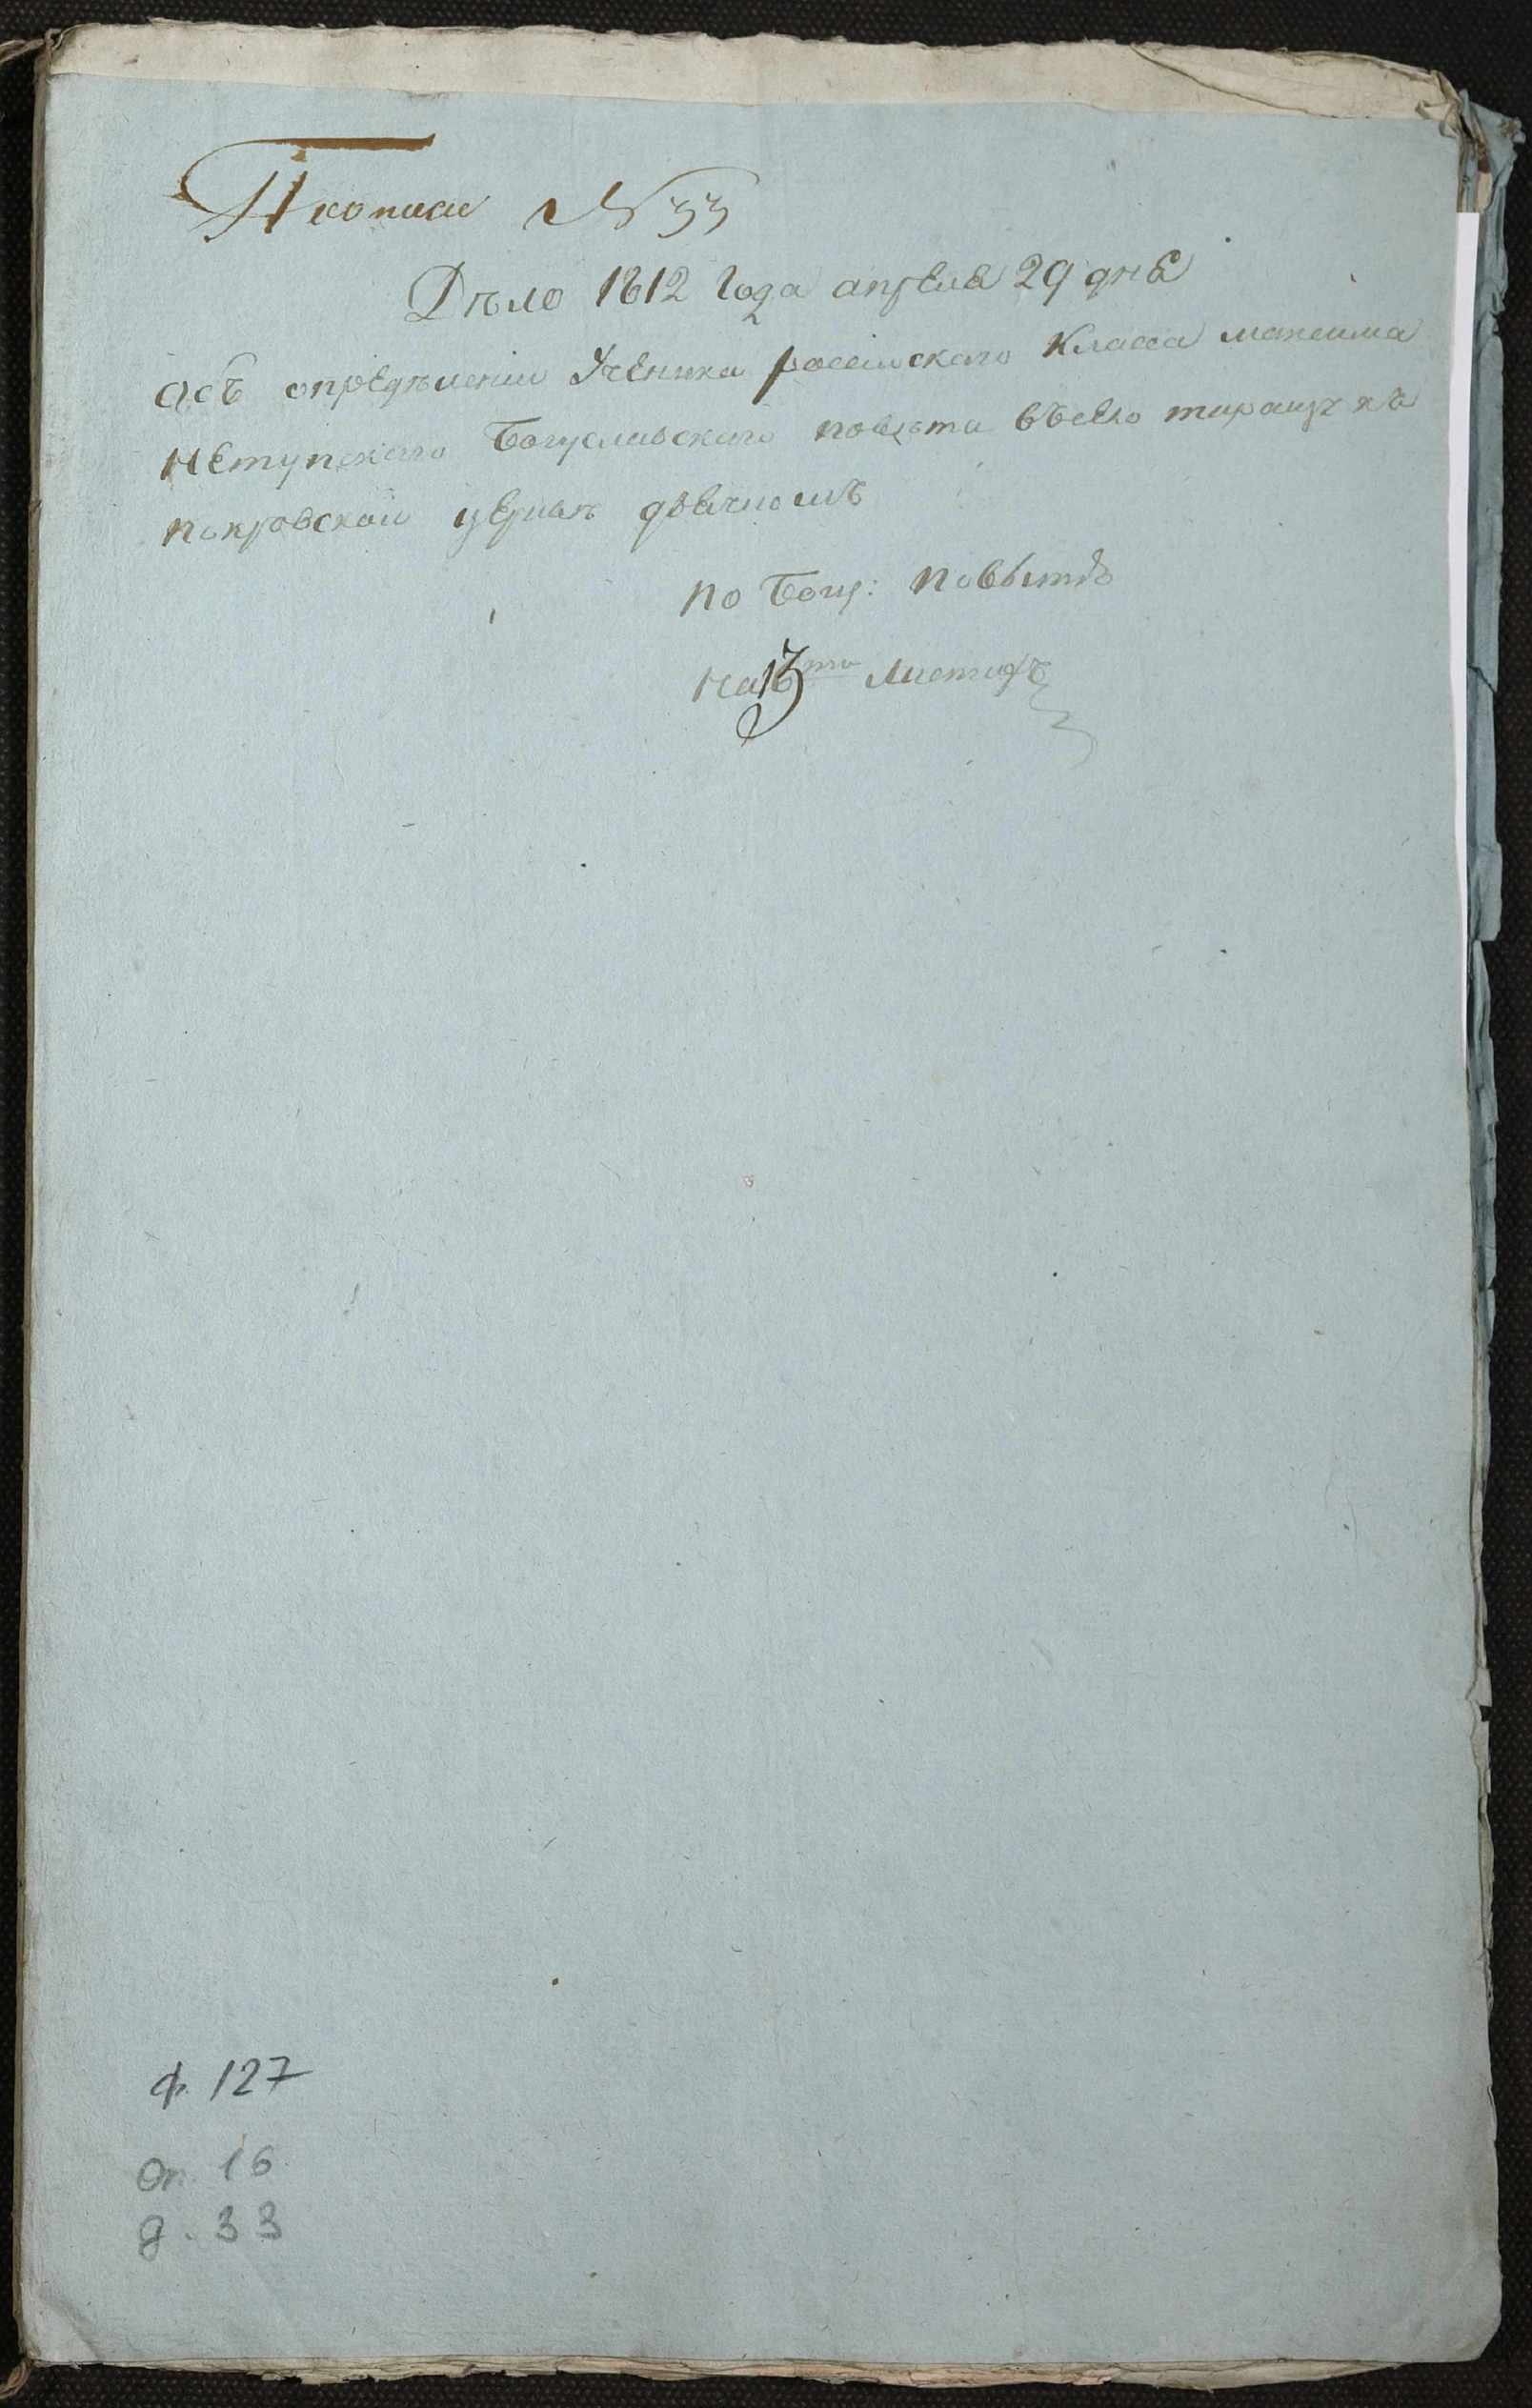 По описи № 33
Дѣло 1812 года апреля 29 дня
Объ опредѣлении Ученика россійскаго Класса максима
нетупскаго Богуславскаго повѣта въ село к
покровской церквѣ дьячкомъ
по Богу: повытю
на 13 листахъ
ф. 127
Оп. 16
д. 33